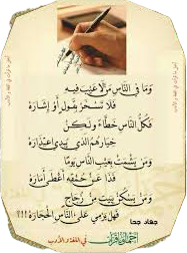 وَمَا فِي النَّاسِ مَنْ لَا عَيْبَ فِيهِ
فَلَا تَسْخَرْ بِقَوْلٍ أَوْ إِشَارَهْ
فَكُلُّ النَّاسِ خَطَّاءٌ وَلَكِنْ
خِيَارُهُمُ الَّذِي يُبْدِي اعْتِذَارَهْ
وَمَنْ يَشْمَتْ بِعَيْبِ النَّاسِ يَوْمًا
فَذَا عَنْ حُمْقِهِ أَعْطَى أَمَارَهْ
وَمَنْ يَسْكُنْ بِبَيْتٍ مِنْ زُجَاجٍ
فَهَلْ يَرْمِي عَلَى النَّاسِ الْحِجَارَهْ؟!!!
جهاد جحا
في اللغة والأدب